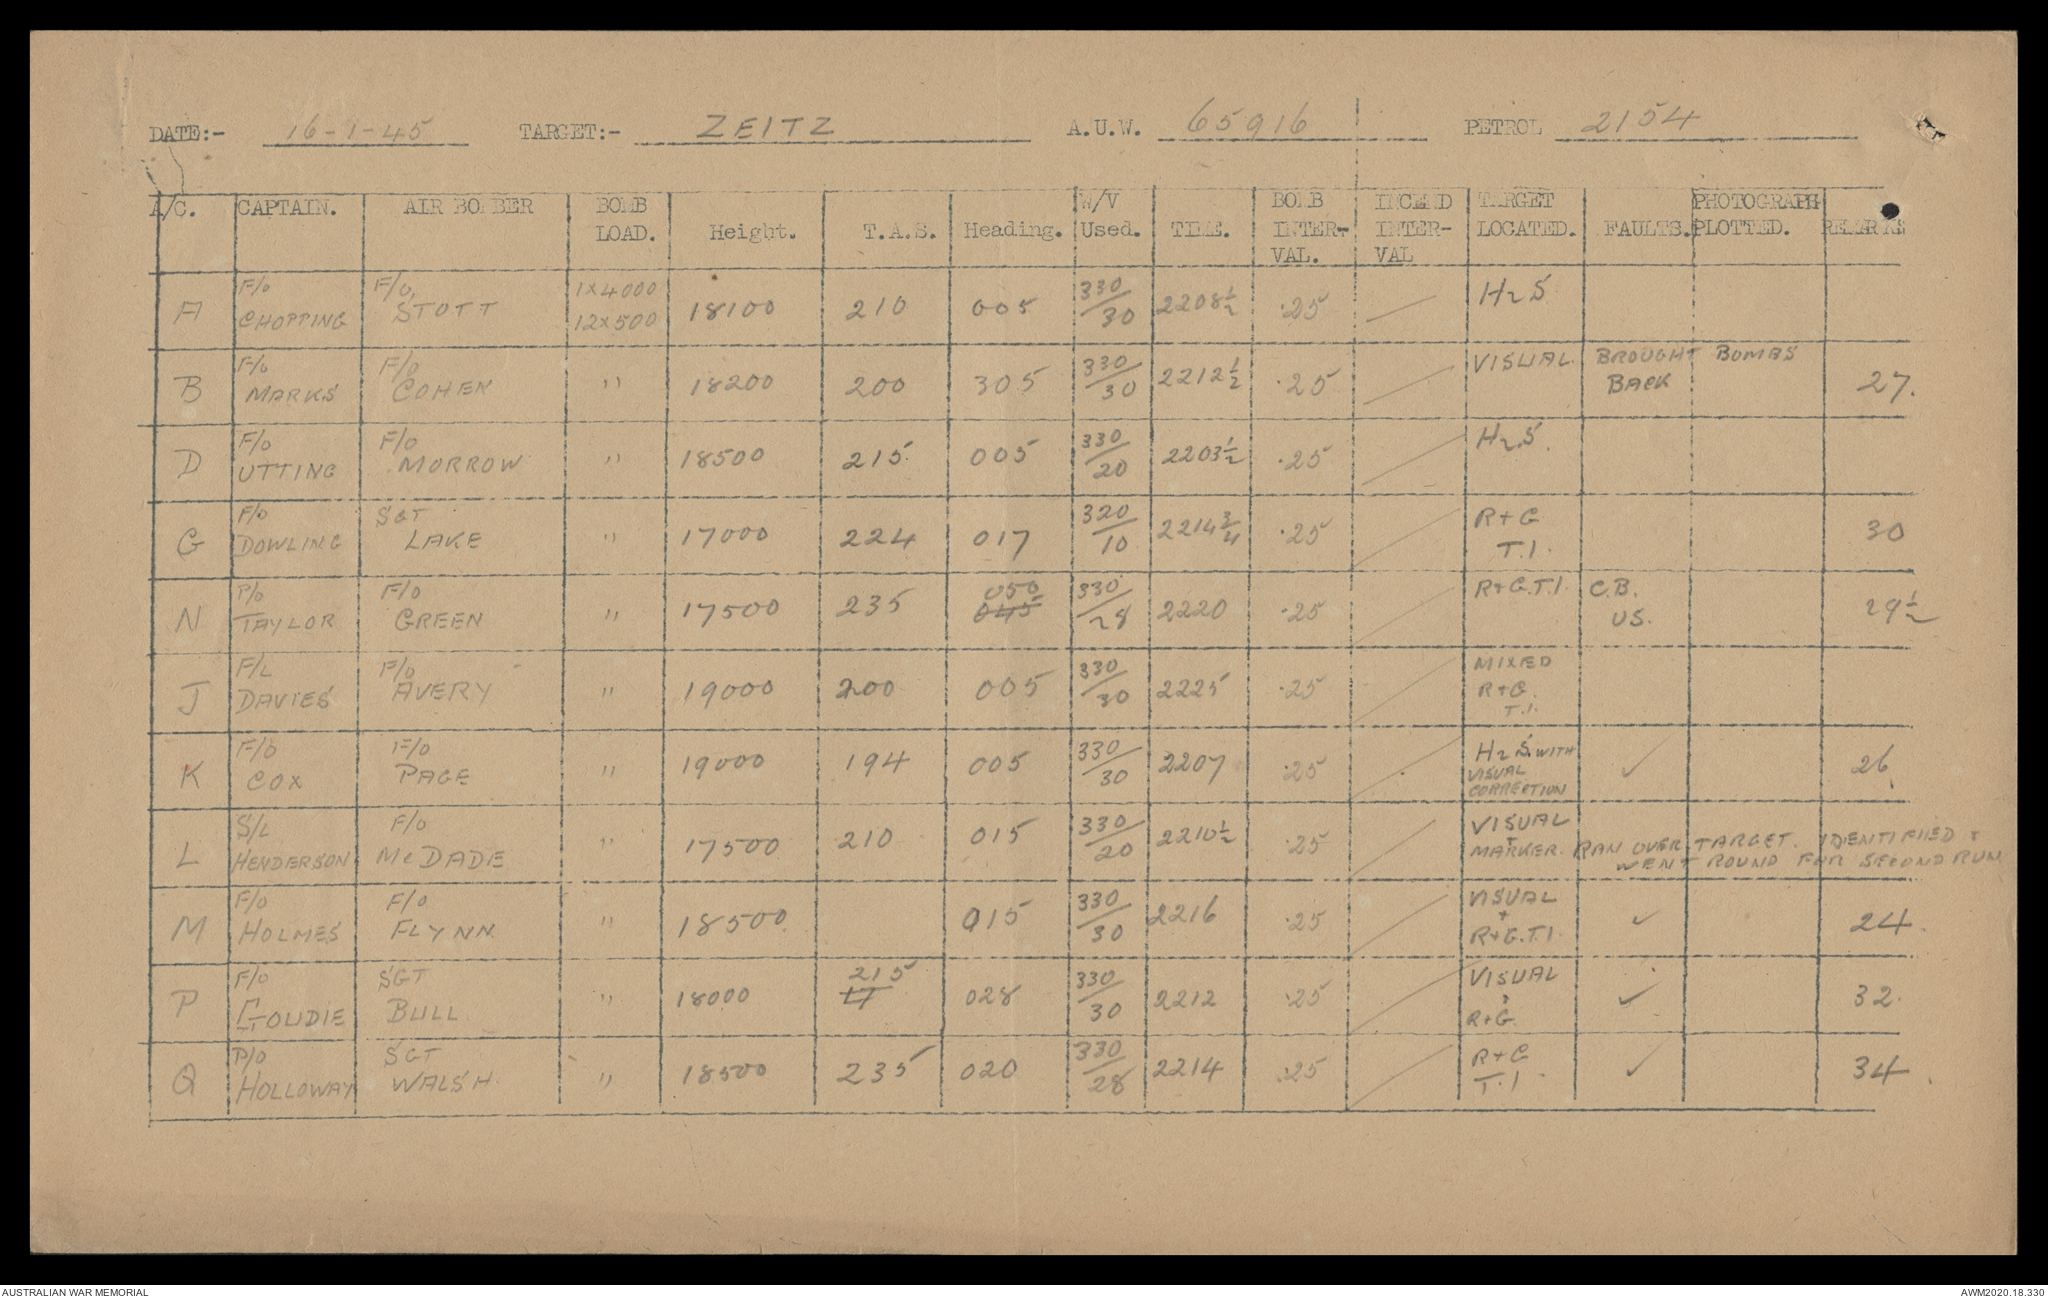 DATE:- 16-1-45 TARGET:- ZEITZ A.U.W. 65916 PETROL 2154
A/C. CAPTAIN. AIR BOMBER BOMB LOAD. Height. T.A.S. Heading. W/V Used. TIME. BOMB INTER-VAL. INCEND INTER-VAL TARGET LOCATED. FAULTS. PHOTOGRAPH PLOTTED. REMARKS
A F/O CHOPPING F/O STOTT 1x4000 12x500 18100 210 005 330/30 2208½ .25 H2S
B F/O MARKS F/O COHEN " 18200 200 305 330/30 2212½ .25 VISUAL. BROUGHT BOMBS BACK 27.
D F/O UTTING F/O MORROW " 18500 215 005 330/20 2203½ .25 H2S.
G F/O DOWLING SGT LAKE " 17000 224 017 320/10 2214¾ .25 R+G T.I. 30
N P/O TAYLOR F/O GREEN " 17500 235 050 045 330/28 2220 .25 R+G.T.I. C.B. US. 29½
J F/L DAVIES F/O AVERY " 19000 200 005 330/30 2225 .25 MIXED R+G. T.I.
K F/O COX F/O PAGE " 19000 194 005 330/30 2207 .25 H2S. WITH VISUAL CORRECTION ✓ 26.
L S/L HENDERSON F/O McDADE " 17500 210 015 330/20 2210½ .25 VISUAL + MARKER. RAN OVER TARGET. IDENTIFIED + WENT ROUND FOR SECOND RUN
M F/O HOLMES F/O FLYNN " 18500. 015 330/30 2216 .25 VISUAL + R+G.T.I. ✓ 24.
P F/O GOUDIE SGT BULL. " 18000 215 028 330/30 2212 .25 VISUAL + R+G. ✓ 32.
Q P/O HOLLOWAY SGT WALSH. " 18500 235 020 330/28 2214 .25 R+G T.I. ✓ 34.
AUSTRALIAN WAR MEMORIAL AWM2020.18.330